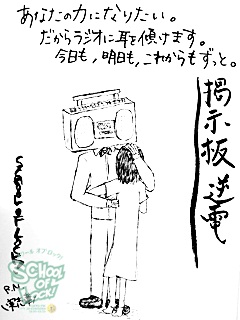 あなたの力になりたい。
だからラジオに耳を傾けます。
今日も,明日も,これからもずっと。
掲示板 逆電
SCHOOL OF LOCK!
P.N